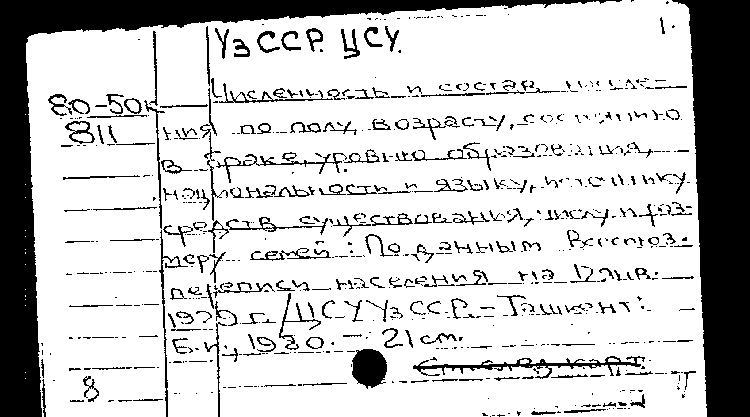 1.
УзССР. ЦСУ.
Численность и состав населе-
80-50к
811 ния по полу, возрасту, состоянию
в браке, уровню образования,
национальности и языку, источнику
средств существования, числу и раз-
меру семей: По данным Всесоюз.
переписи населения на 17 янв.
1979 г. / ЦСУ УзССР. - Ташкент:
Б.и., 1980. - 21 см.
См. след. карт.
8